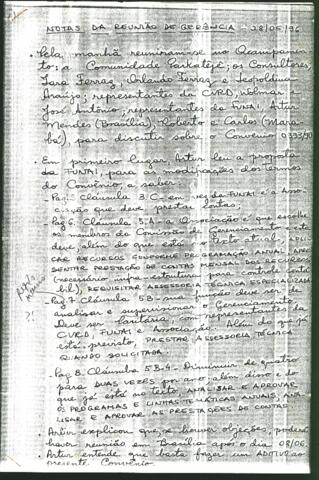 NOTAS DA REUNIÃO DE GERÊNCIA 28/05/96
• Pela manhã reuniram-se no Acampamen-
to: a Comunidade Parkatêjê; os Consultores,
Iara Ferraz, Orlando Ferraz e Leopoldina
Araújo; representantes da CVRD, Welmar e
José Antônio; representantes da FUNAI, Artur
Mendes (Brasília), Roberto e Carlos (Mara-
bá), para discutir sobre o Convênio 0333/90
• Em primeiro lugar, Artur leu a proposta
da FUNAI, para as modificações dos termos
do Convênio, a saber:
- Pag. Cláusula 3. em vez da FUNAI é a Asso-
ciação que deve prestar contas.
- Pag 6. Cláusula 5.A. a Associação é que escolhe
os membros da Comissão de Gerenciamento e esta
deve, além do que está no texto atual, APLI-
CAR RECURSOS CONFORME PROGRAMAÇÃO ANUAL, APRE-
SENTAR PRESTAÇÃO DE CONTAS MENSAL DOS RECURSOS
(necessário infra-estrutura para controle contá-
bil), REQUISITAR ASSESSORIA TÉCNICA ESPECIALIZADA
- Pag. 7 Cláusula 5B - sua função deve ser de
analisar e supervisionar o Gerenciamento.
Deve ser paritária com representantes da
CVRD, FUNAI e Associação. Além do que já
está previsto, PRESTAR ASSESSORIA TÉCNICA
QUANDO SOLICITADA.
?!
- Pag 8. Cláusula 5B.4 - Diminuir de quatro
para DUAS VEZES por ano, além disso e do
que já está no texto ANALISAR E APROVAR
OS PROGRAMAS E LINHAS TEMÁTICAS ANUAIS, ANA-
LISAR E APROVAR AS PRESTAÇÕES DE CONTAS.
• Artur explicou que, se houver objeções, poderá
haver reunião em Brasília após o dia 08/06.
• Artur entende que basta fazer um ADITIVO ao
presente Convênio